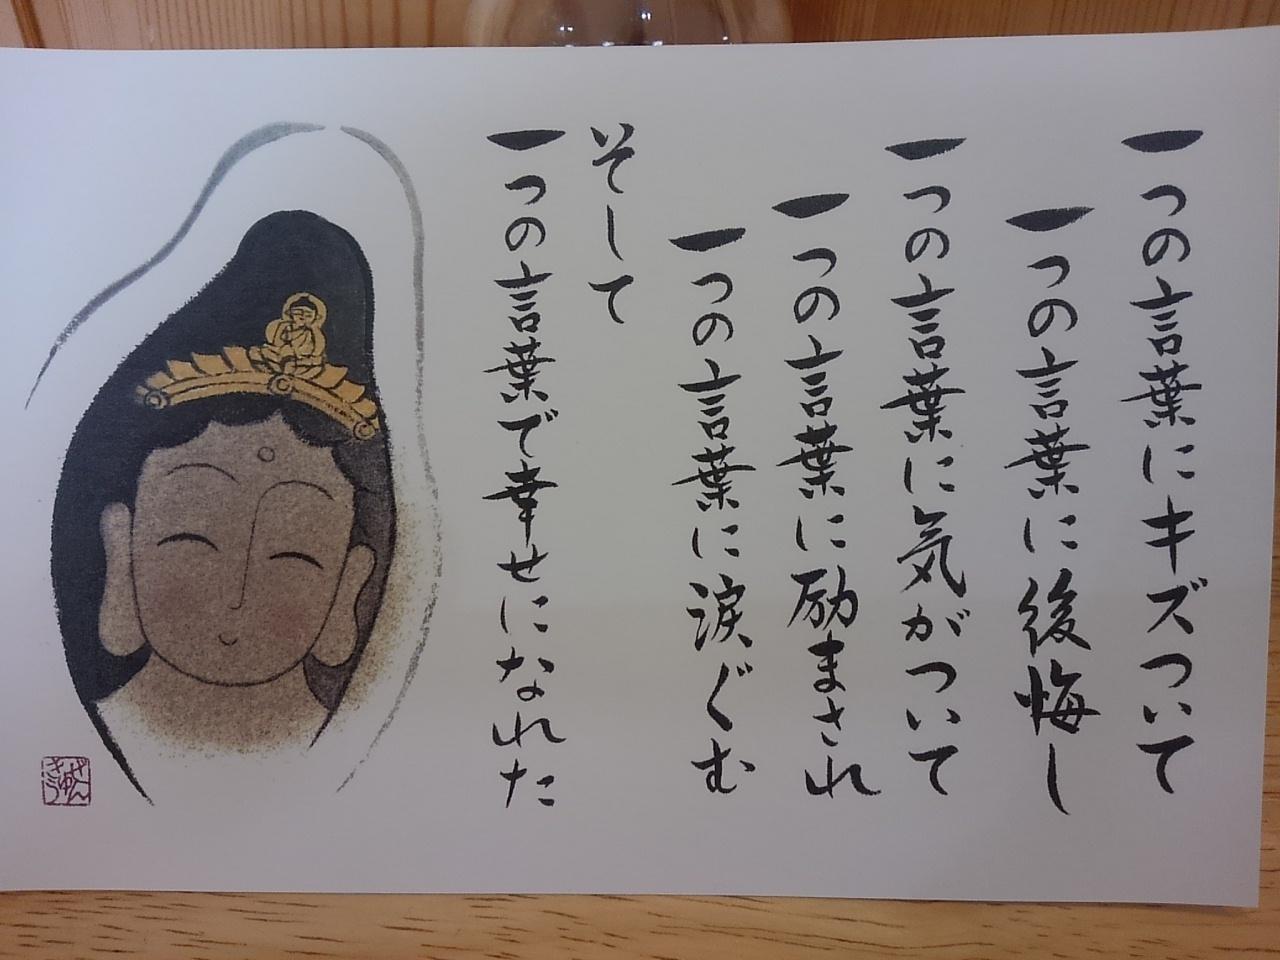 一つの言葉にキズついて
一つの言葉に後悔し
一つの言葉に気がついて
一つの言葉に励まされ
一つの言葉に涙ぐむ
そして
一つの言葉で幸せになれた
ぜん
きゅう